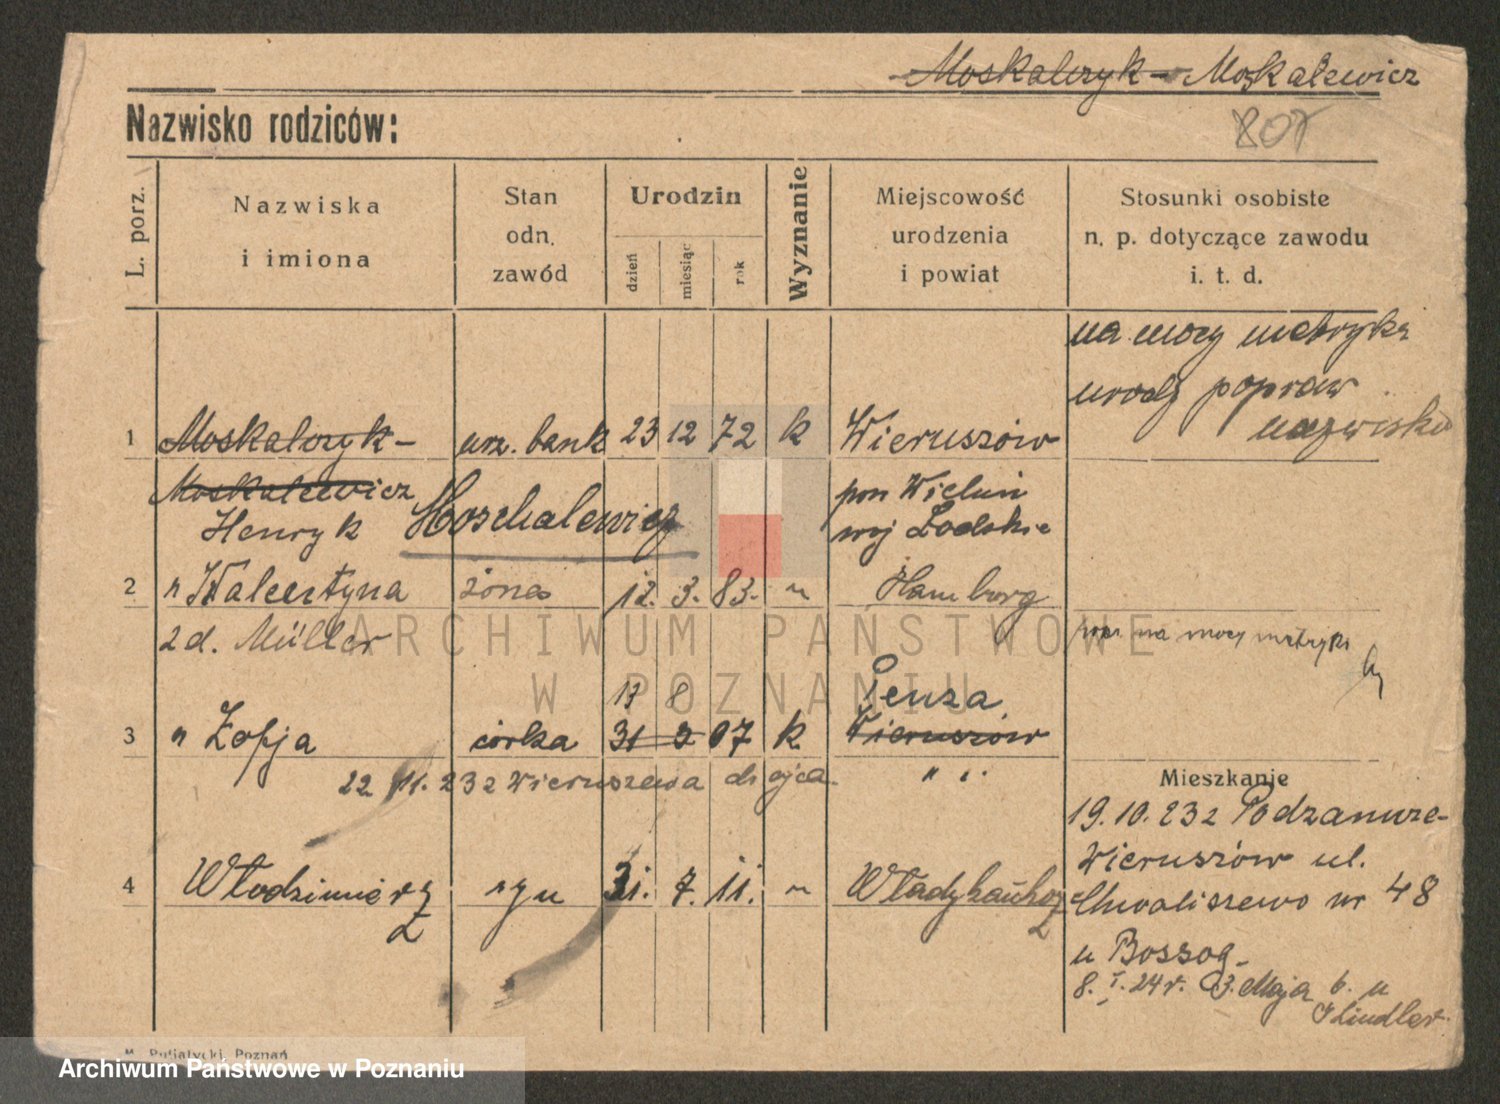 Moskalczyk - Moskalewicz
Nazwisko rodziców:
807
L. porz.
Nazwiska
i imiona
Stan
odn.
zawód
Urodzin
dzień
miesiąc
rok
Wyznanie
Miejscowość
urodzenia
i powiat
Stosunki osobiste
n. p. dotyczące zawodu
i. t. d.
na mocy metryki
urodz popraw
nazwisko
1 Moskalczyk - urz. bank 23 12 72 k Wieruszów
Moskalewicz
Henryk Moschalewicz
pow Wieluń
woj Łodskie
2 " Walentyna żona 12. 3. 83. " Hamborg
z d. Müller
na mocy metryki
ARCHIWUM PAŃSTWOWE
W POZNANIU
17 8 Penza
3 " Zofja córka 31 2 07 k Wieruszów
22 11. 23 z Wieruszewa do ojca " "
Mieszkanie
19.10.23 z Podzamcze-
Wieruszów ul.
4 Włodzimierz syn 31. 7. 11. " Władykaukaz
Chwaliszewo nr 48
u Bossog-
8. I. 24 r. 3. Maja 6. u
M. Putiatycki, Poznań
Archiwum Państwowe w Poznaniu